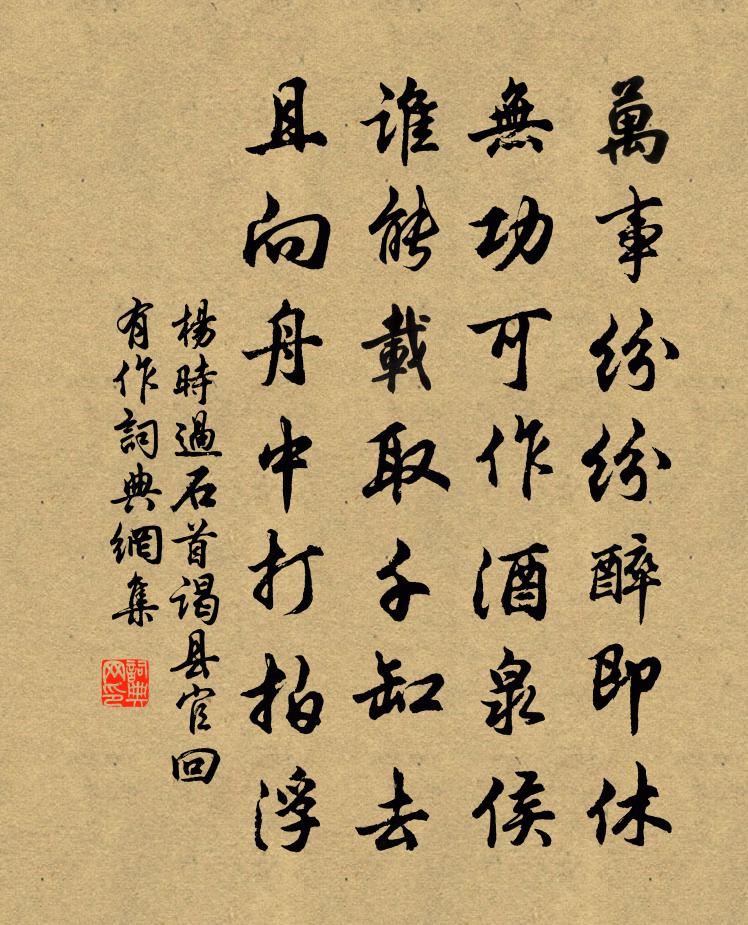 萬事紛紛醉即休
無功可作酒泉侯
誰能載取千缸去
且向舟中打拍浮
楊時過石首謁县官回
有作詞典網集
詞典网印